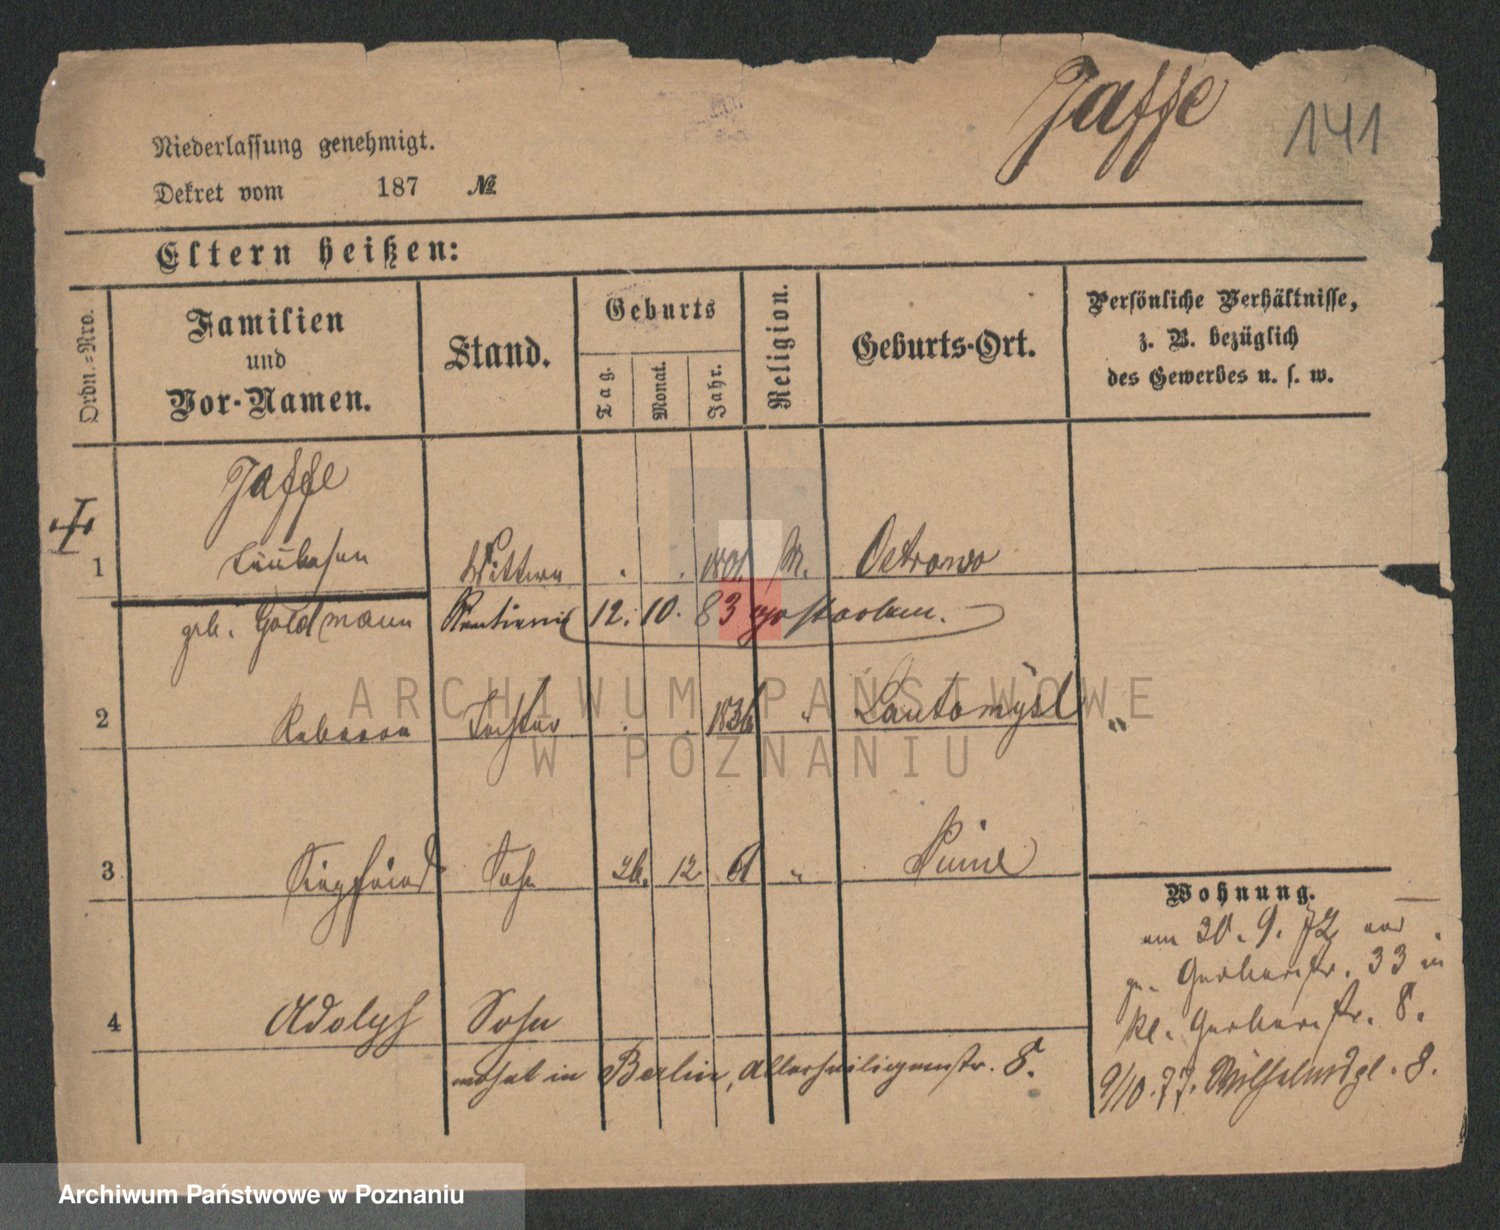 Jaffe
141
Niederlassung genehmigt.
Dekret vom 187 №
Eltern heißen:
Ordn.=Nro.
Familien
und
Vor-Namen.
Stand.
Geburts
Tag.
Monat.
Jahr.
Religion.
Geburts-Ort.
Persönliche Verhältnisse,
z. B. bezüglich
des Gewerbes u. s. w.
Jaffe
1 Wittwe . . 1801 M. Ostrowo
geb. Goldmann Rentiere 12. 10. 83 gestorben.
2 Rebecca Tochter . . 1836 " "
3 Siegfried Sohn 26. 12 " Pinne
Wohnung.
am 30. 9. 72 von
gr. Gerberstr. 33 in
kl. Gerberstr. 8.
4 Adolph Sohn
wohnt in Berlin, Allerheiligenstr. 8.
9/10. 77. Wilhelmspl. 8.
ARCHIWUM PAŃSTWOWE
W POZNANIU
Archiwum Państwowe w Poznaniu